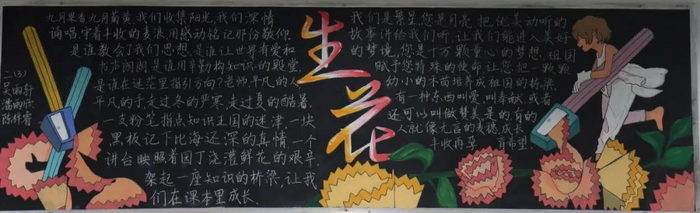 九月果香九月菊黄我们收集阳光,我们深情
诵唱守着丰收的麦浪用感动铭记那份敬仰.
是谁教会了我们思想,是谁让世界有爱和
书声阁阁是谁用辛勤构知识的殿堂,
是谁在迷茫里指引方向?老师,平凡的人
平凡的手走过冬的严寒走过夏的酷暑.
一支粉笔指点知识王国的迷津一块
黑板记下比海还深的真情一个
讲台映照着园丁浇灌鲜花的艰辛.
架起一座知识的桥梁,让我
们在课本里成长.
二(3)
生花
我们是繁星,您是月亮把优美动听的
故事讲给我们听,让我们能进入美好
的梦境,您是千万颗童心的梦想,祖国
赋予您特殊的使命让您把一颗颗
幼小的木苗培养成祖国的栋梁
有一种东西叫爱叫奉献或者
还可以叫做赞美是的有的
人就像无言的麦穗成长
丰收再享
育希望